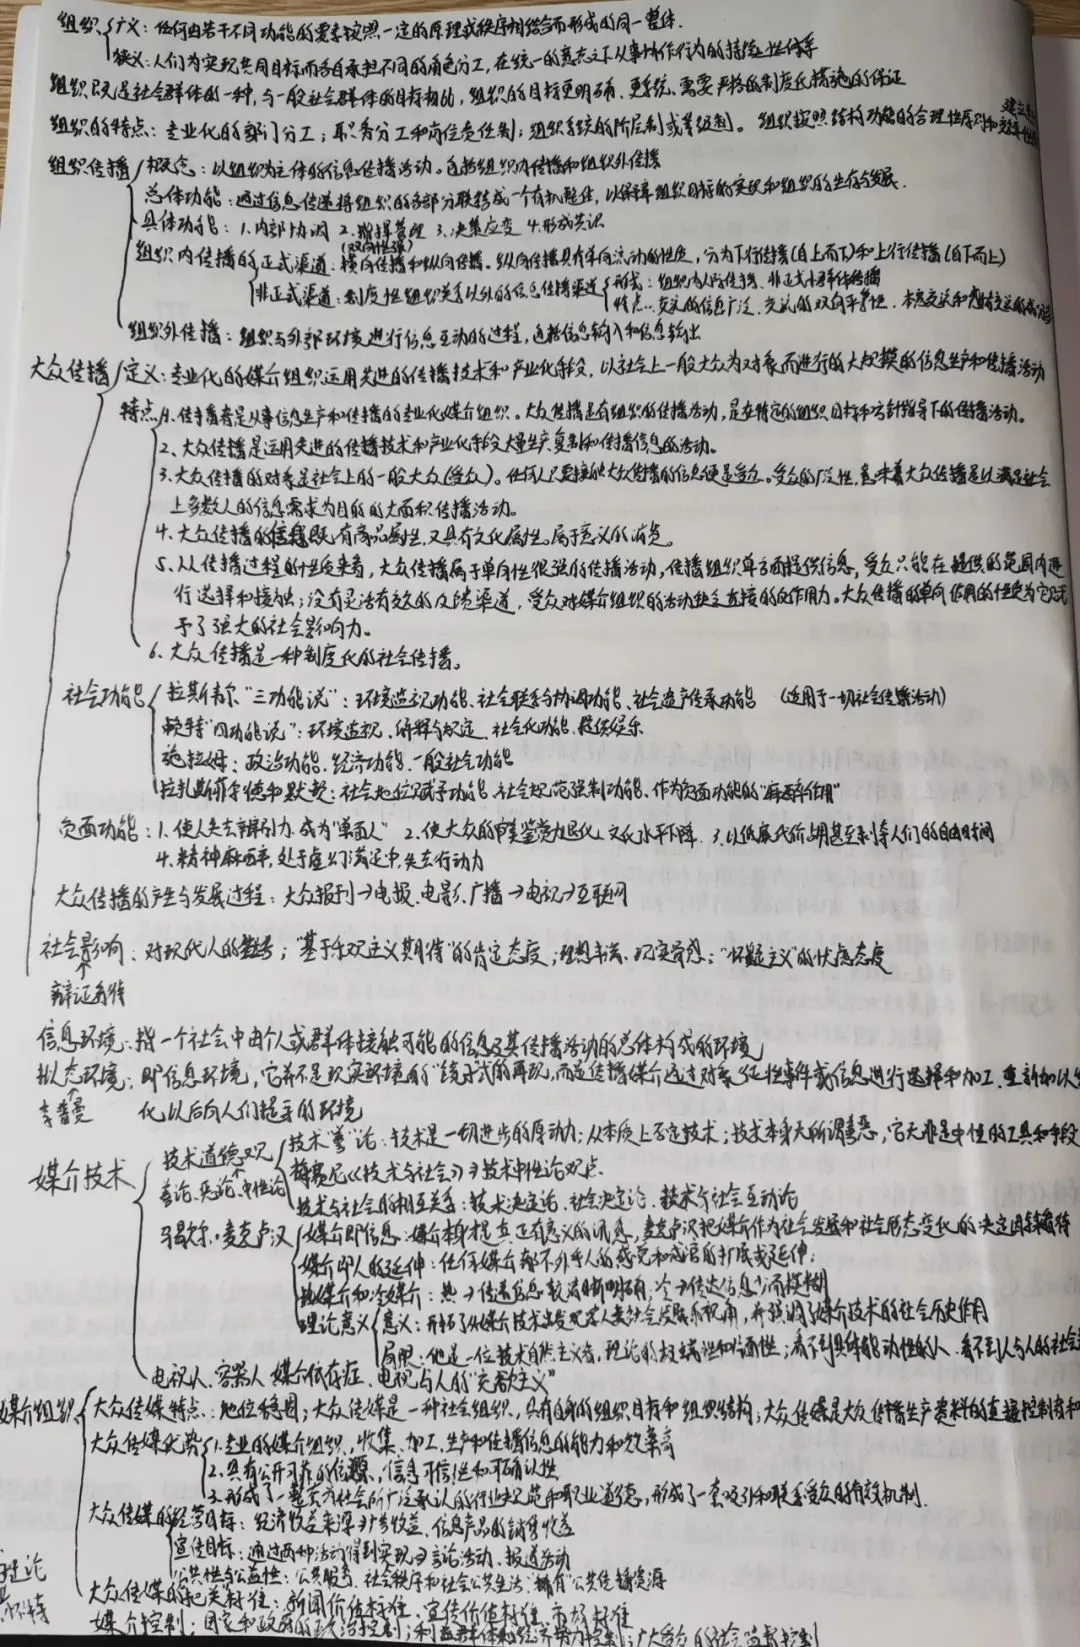 组织 广义：任何由若干不同功能的要素按照一定的原理或秩序相结合而形成的同一整体.
狭义：人们为实现共同目标而各自承担不同的角色分工，在统一的意志之下从事协作行为的持续性体系
组织既是社会群体的一种，与一般社会群体的目标相比，组织的目标更明确、更系统、需要严格的制度化措施的保证
组织的特点：专业化的部门分工；职务分工和岗位责任制；组织系统的阶层制或等级制。组织按照结构功能的合理性原则 建立
组织传播 概念：以组织为主体的信息传播活动。包括组织内传播和组织外传播
总体功能：通过信息传递将组织的各部分联结成一个有机整体，以保障组织目标的实现和组织的生存与发展.
具体功能：1.内部协调 2.指挥管理 3.决策应变 4.形成共识
组织内传播的 正式渠道：(双向性强) 横向传播和纵向传播。纵向传播具有单向流动的性质，分为下行传播(自上而下)和上行传播(自下而上)
非正式渠道：制度性组织关系以外的信息传播渠道 形式：组织内人际传播、非正式小群体传播
特点：交流的信息广泛、交流的双向平等性、本意交流和
组织外传播：组织与外部环境进行信息互动的过程，包括信息输入和信息输出
大众传播 定义：专业化的媒介组织运用先进的传播技术和产业化手段，以社会上一般大众为对象而进行的大规模的信息生产和传播活动
特点 1.传播者是从事信息生产和传播的专业化媒介组织。大众传播是有组织的传播活动，是在特定的组织目标和方针指导下的传播活动。
2、大众传播是运用先进的传播技术和产业化手段大量生产、复制和传播信息的活动。
3、大众传播的对象是社会上的一般大众(受众)。任何人只要接触大众传播的信息便是受众。受众的广泛性，意味着大众传播是以满足社会
上多数人的信息需求为目的的大面积传播活动。
4、大众传播的信息既有商品属性，又具有文化属性。属于意义的消费。
5、从传播过程的性质来看，大众传播属于单向性很强的传播活动，传播组织单方面提供信息，受众只能在提供的范围内进
行选择和接触；没有灵活有效的反馈渠道，受众对媒介组织的活动缺乏直接的反作用力。大众传播的单向作用的性质为它赋
予了强大的社会影响力。
6、大众传播是一种制度化的社会传播。
社会功能 拉斯韦尔“三功能说”：环境监视功能、社会联系与协调功能、社会遗产传承功能 (适用于一切社会传播活动)
赖特“四功能说”：环境监视、解释与规定、社会化功能、提供娱乐
施拉姆：政治功能、经济功能、一般社会功能
拉扎斯菲尔德和默顿：社会地位赋予功能、社会规范强制功能、作为负面功能的“麻醉作用”
负面功能：1.使人失去辨别力、成为“单面人” 2.使大众的审美鉴赏力退化、文化水平下降. 3.以低廉代价占用甚至剥夺人们的自由时间
4.精神麻醉，处于虚幻满足中，失去行动力
大众传播的产生与发展过程：大众报刊→电报、电影、广播→电视→互联网
社会影响：对现代人的；“基于乐观主义期待”的肯定态度；理想书写、现实警惕；“怀疑主义”的忧虑态度
辩证看待
信息环境：指一个社会中由个人或群体接触可能的信息及其传播活动的总体构成的环境
拟态环境：即信息环境，它并不是现实环境的“镜子式的再现，而是传播媒介通过对象征性事件或信息进行选择和加工、重新加以
李普曼 化以后向人们提示的环境
媒介技术 技术道德观 技术“善”论：技术是一切进步的原动力；从本质上否定技术；技术本身无所谓善恶，它无非是中性的工具和手段
善论、恶论、中性论 梅赛尼《技术与社会》→技术中性论观点
技术与社会的相互关系：技术决定论、社会决定论、技术与社会互动论
马歇尔·麦克卢汉 媒介即信息：媒介本身才是真正有意义的讯息，麦克卢汉把媒介作为社会发展和社会形态变化的决定因素看待
媒介即人的延伸：任何媒介都不外乎人的感觉和感官的扩展或延伸；
热媒介和冷媒介：热→传递信息较清晰明确；冷→传达信息少而模糊
理论意义 意义：开拓了从媒介技术出发观察人类社会发展的视角，并强调了媒介技术的社会历史作用
局限：他是一位技术自然主义者，理论的极端性和片面性；看不到具体能动性的人、看不到人与人的社会
电视人、容器人、媒介依存症、电视与人的“充欲主义”
媒介组织 大众传媒特点：地位稳固；大众传媒是一种社会组织，具有自身的组织目标和组织结构；大众传媒是大众传播生产资料的直接控制者和
大众传媒优势 1.专业的媒介组织，收集、加工、生产和传播信息的能力和效率高
2、具有公开可靠的信源，信息可信性和可确认性
3、形成了一整套为社会所广泛承认的行业规范和职业道德，形成了一套吸引和联系受众的有效机制.
大众传媒的经营目标：经济收益来源→广告收益、信息产品的销售收益
宣传目标：通过两种活动得到实现→言论活动、报道活动
公共性与公益性：公共服务、社会秩序和社会公共生活“拥有”公共传播资源
大众传媒的把关标准：新闻价值标准、宣传价值标准、市场标准
媒介控制：国家和政府的政治控制；利益群体和经济势力控制；广大受众的社会监督控制
理论